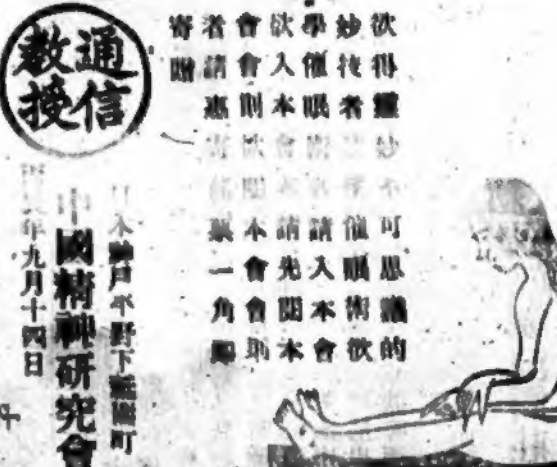 欲得靈妙不可思議的
妙技者學催眠術欲
學催眠術者請入本會
欲入本會者請先閱本
會會則欲閱本會會則
者請惠寄郵票一角即
寄贈
通信
教授
日本神戶平野下祇園町
中國精神研究會
年九月十四日